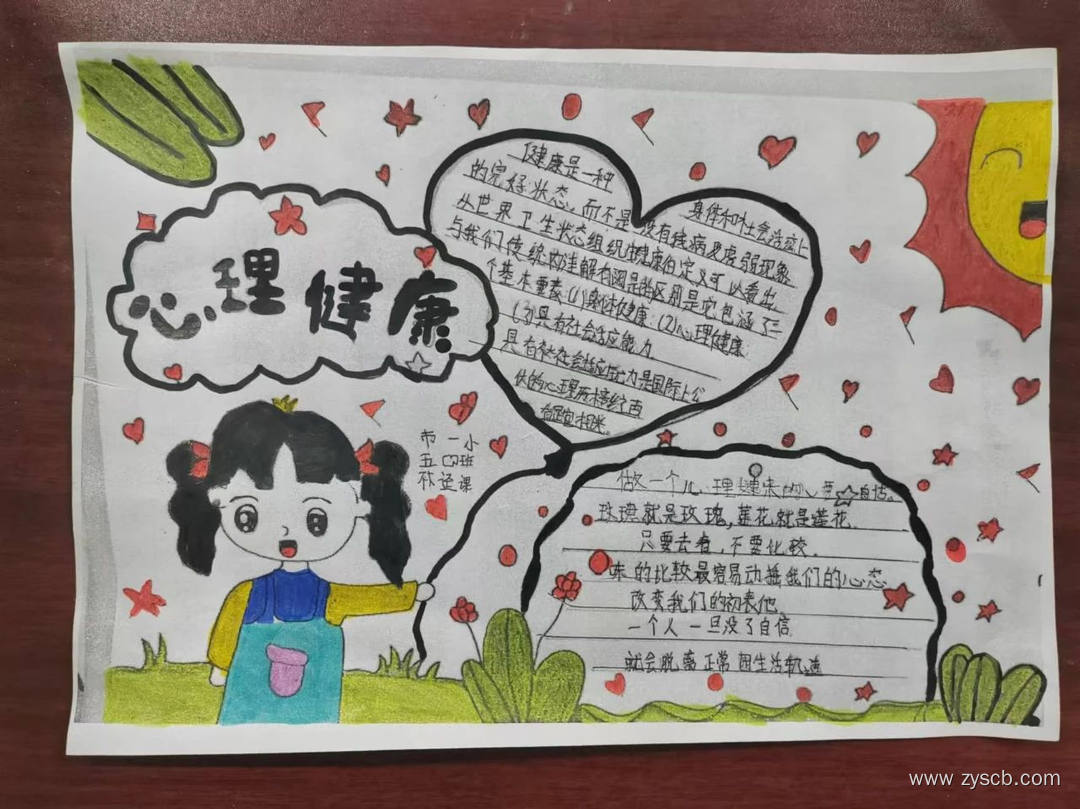 心理健康
健康是一种
的完好状态，而不是没有疾病及虚弱现象
身体和社会适应上
从世界卫生状态组织健康的定义可以看出
与我们传统的注解有的区别是它包涵了三
个基本要素(1)身体健康(2)心理健康
(3)具有社会适应能力
具有社会适应力是国际上公
伙的心理
市一小
五四班
做一个心理健
玫瑰就是玫瑰，莲花就是莲花
只要去看，不要比较。
味的比较最容易动摇我们的心态
改变我们的初衷
一个人一旦没了自信
就会脱离正常的生活轨道
www.zyscb.com